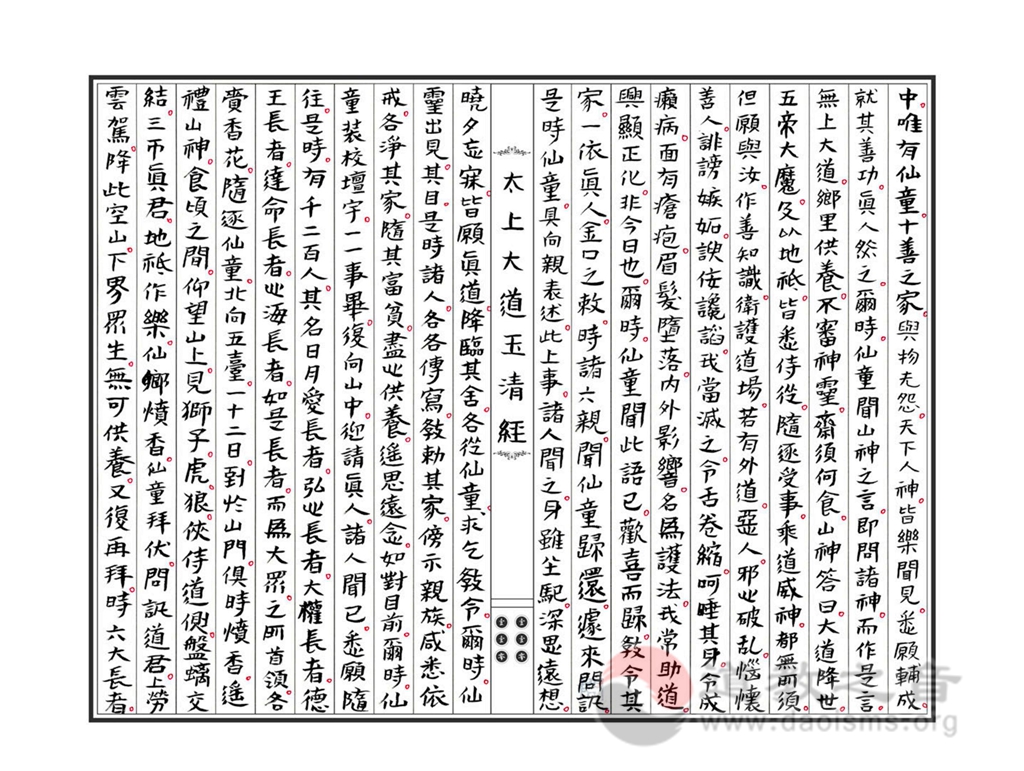 中唯有仙童十善之家與物无怨天下人神皆樂聞見悉願輔成
就其善功眞人然之爾時仙童聞山神之言即問諸神而作是言
無上大道鄉里供養不審神靈齋須何食山神答曰大道降世
五帝大魔及以地祇皆悉侍從隨逐受事乘道威神都無所須
但願與汝作善知識衛護道場若有外道惡人邪心破乱惱懷
善人誹謗嫉妬諛佞讒謟我當滅之令舌卷縮呵唾其身令成
癩病面有瘡疱眉髮墮落内外影響名爲護法我常助道
興顯正化非今日也爾時仙童聞此語已歡喜而歸敎令其
家一依眞人金口之敕時諸六親聞仙童歸還遽來問訊
是時仙童具向親表述此上事諸人聞之身雖坐馳深思遠想
太上大道玉清經
曉夕忘寐皆願眞道降臨其舍各從仙童求乞敎令爾時仙
靈出見其目是時諸人各各傳寫敎勅其家傍示親族咸悉依
戒各淨其家隨其富貧盡心供養遙思遠念如對目前爾時仙
童裝校壇宇一一事畢復向山中迎請眞人諸人聞已悉願隨
往是時有千二百人其名日月愛長者弘心長者大權長者德
王長者達命長者心海長者如是長者而爲大眾之所首領各
賫香花隨逐仙童北向五臺一十二日到於山門俱時燌香遙
禮山神食頃之間仰望山上見獅子虎狼俠侍道側盤螭交
結三帀眞君地祇作樂仙鄉燌香仙童拜伏問訊道君上勞
雲駕降此空山下界眾生無可供養又復再拜時六大長者
道教之音
www.daoisms.org